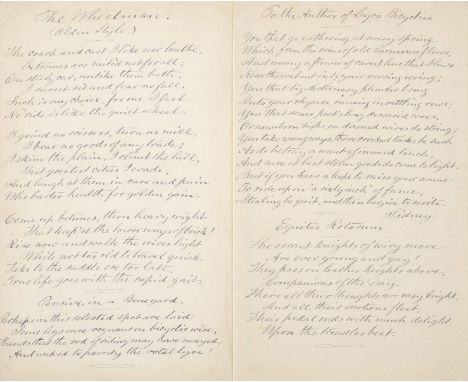 The Wheelman.
(Olden Style.)
The coach and cart I like nor loathe,
Extremes are suited not for all;
On steely car, unlike them both,
I most sit and fear no fall.
Such is my choice, for one I feel
No ride is like the quiet wheel.
I grind no scissors, turn no mill,
I bear no goods of my trade;
I skim the plain, I climb the hill,
But greatest cities I evade,
And laugh at them in care and pain
Who barter health for golden gain.
Come up betimes, then heavy wight
That keep'st the lower ways of brick!
Rise now and walk the wiser light
While not too old to travel quick.
Take to the saddle ere too late,
True life goes with the rapid gait.
Pensive in a Boneyard.
Perhaps in this selected spot are laid
Some legs once regnant on bicyclic wire,
Hands that the rod of riding may have swayed,
And waked to parody the rotal lyre!
To the Author of Lyra Bicyclica.
You that go gathering at wrong spring
Which from the ribs of old
And many a flower of sweet line that blows
Near thereabout into your versing wring;
You that big dictionary plunder bring
Into your rhymes, running in rattling rows;
You that some poet's long deceased woes,
Or new-born sighs, or do string;
You take wrong ways; those crooked tasks be such
As do betray a want of inward touch,
And sure at last stolen goods come to light.
But if you have a hope to raise your name
To ride upon a "valginck" of fame,
Stealing be quit, and then begin to write.
Sidney.
Equites Rotarum.
The cornet knights of wiry move
Are ever young and gay!
They press on leather heights above,
Companions of the day.
There all their thoughts are rosy bright,
And all their motions fleet,
Their pedal ends with much delight
Upon the treadles beat.